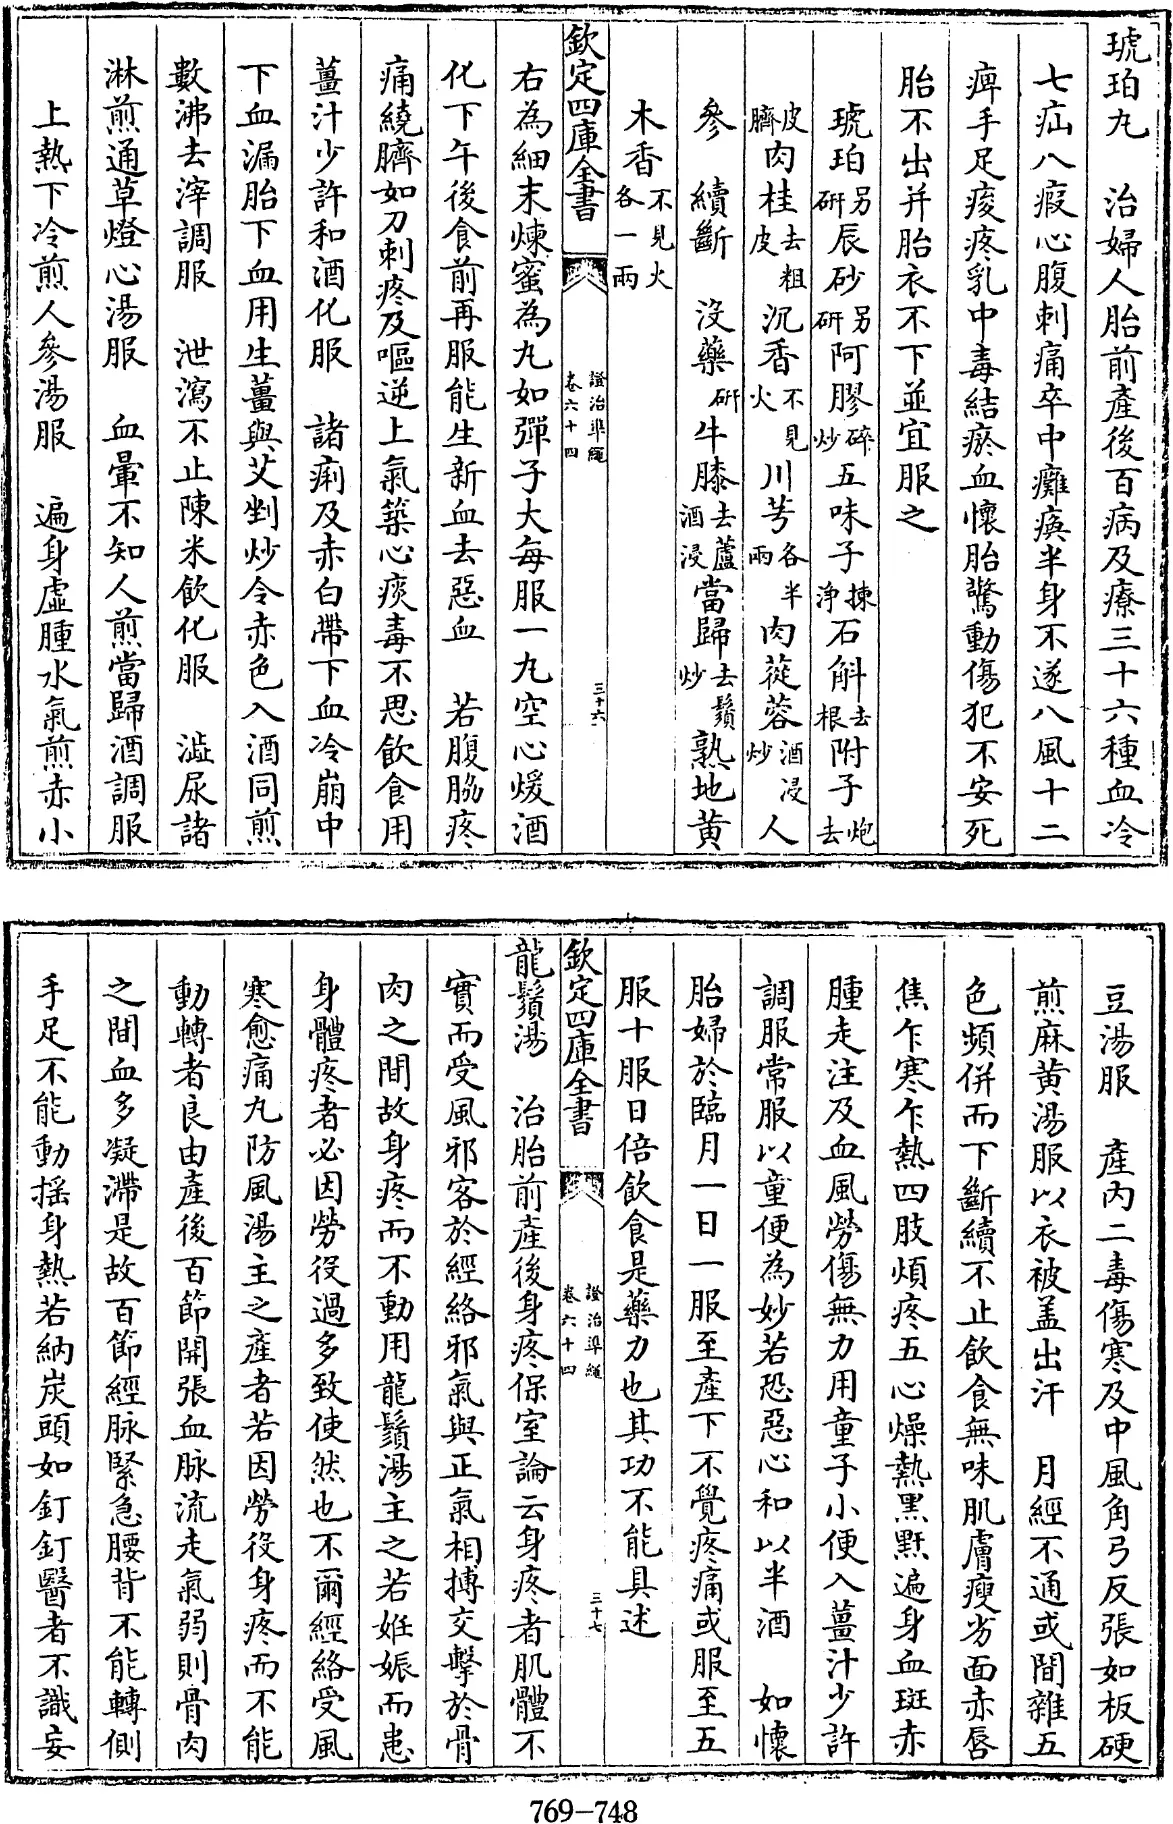 琥珀丸　治婦人胎前產後百病及療三十六種血冷
七疝八瘕心腹刺痛卒中癱瘓半身不遂八風十二
痺手足痠疼乳中毒結瘀血懷胎驚動傷犯不安死
胎不出并胎衣不下並宜服之
琥珀另研辰砂另研阿膠碎炒五味子揀淨石斛去根附子炮去
皮臍肉桂去粗皮沉香不見火川芎各半兩肉蓯蓉酒浸炒人
參　續斷　沒藥研牛膝去蘆酒浸當歸去鬚炒熟地黃
木香不見火各一兩
欽定四庫全書
證治準繩
卷六十四
三十六
右為細末煉蜜為丸如彈子大每服一丸空心煖酒
化下午後食前再服能生新血去惡血　若腹脇疼
痛繞臍如刀刺疼及嘔逆上氣築心痰毒不思飲食用
薑汁少許和酒化服　諸痢及赤白帶下血冷崩中
下血漏胎下血用生薑與艾剉炒令赤色入酒同煎
數沸去滓調服　泄瀉不止陳米飲化服　澁尿諸
淋煎通草燈心湯服　血暈不知人煎當歸酒調服
上熱下冷煎人參湯服　遍身虛腫水氣煎赤小
豆湯服　產內二毒傷寒及中風角弓反張如板硬
煎麻黃湯服以衣被盖出汗　月經不通或間雜五
色頻併而下斷續不止飲食無味肌膚瘦劣面赤唇
焦乍寒乍熱四肢煩疼五心燥熱黑䵟遍身血斑赤
腫走注及血風勞傷無力用童子小便入薑汁少許
調服常服以童便為妙若恐惡心和以半酒　如懷
胎婦於臨月一日一服至產下不覺疼痛或服至五
服十服日倍飲食是藥力也其功不能具述
欽定四庫全書
證治準繩
卷六十四
三十七
龍鬚湯　治胎前產後身疼保室論云身疼者肌體不
實而受風邪客於經絡邪氣與正氣相搏交擊於骨
肉之間故身疼而不動用龍鬚湯主之若姙娠而患
身體疼者必因勞役過多致使然也不爾經絡受風
寒愈痛丸防風湯主之產者若因勞役身疼而不能
動轉者良由產後百節開張血脉流走氣弱則骨肉
之間血多凝滯是故百節經脉緊急腰背不能轉側
手足不能動搖身熱若納炭頭如釘釘醫者不識妄
769-748